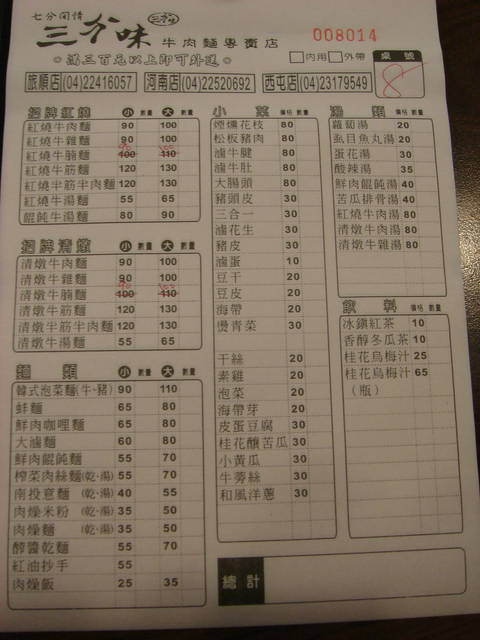 七分閒情
三分味
三分味
牛肉麵專賣店
008014
◎滿三百元以上即可外送◎
□內用 □外帶
桌號
8
旅順店(04)22416057 河南店(04)22520692 西屯店(04)23179549
招牌紅燒 小 數量 大 數量
紅燒牛肉麵 90 100
紅燒牛雜麵 90 100
紅燒牛腩麵 100 110
紅燒牛筋麵 120 130
紅燒半筋半肉麵 120 130
紅燒牛湯麵 55 65
餛飩牛湯麵 80 90
招牌清燉 小 數量 大 數量
清燉牛肉麵 90 100
清燉牛雜麵 90 100
清燉牛腩麵 100 110
清燉牛筋麵 120 130
清燉半筋半肉麵 120 130
清燉牛湯麵 55 65
麵類 小 數量 大 數量
韓式泡菜麵(牛·豬) 90 110
蚌麵 65 80
鮮肉咖哩麵 65 80
大滷麵 60 80
鮮肉餛飩麵 55 70
榨菜肉絲麵(乾·湯) 55 70
南投意麵 (乾·湯) 40 55
肉燥米粉 (乾·湯) 35 50
肉燥麵 (乾·湯) 35 50
醡醬乾麵 55 70
紅油抄手 55
肉燥飯 25 35
小菜 價格 數量
煙燻花枝 80
松板豬肉 80
滷牛腱 80
滷牛肚 80
大腸頭 80
豬頭皮 30
三合一 30
滷花生 30
豬皮 30
滷蛋 10
豆干 20
豆皮 20
海帶 20
燙青菜 30
干絲 20
素雞 20
泡菜 20
海帶芽 20
皮蛋豆腐 30
桂花釀苦瓜 30
小黃瓜 30
牛蒡絲 30
和風洋蔥 30
總計
湯類 價格 數量
蘿蔔湯 20
虱目魚丸湯 20
蛋花湯 30
酸辣湯 35
鮮肉餛飩湯 40
苦瓜排骨湯 40
紅燒牛肉湯 80
清燉牛肉湯 80
清燉牛雜湯 80
飲料 價格 數量
冰鎮紅茶 10
香醇冬瓜茶 10
桂花烏梅汁 25
桂花烏梅汁 65
（瓶）